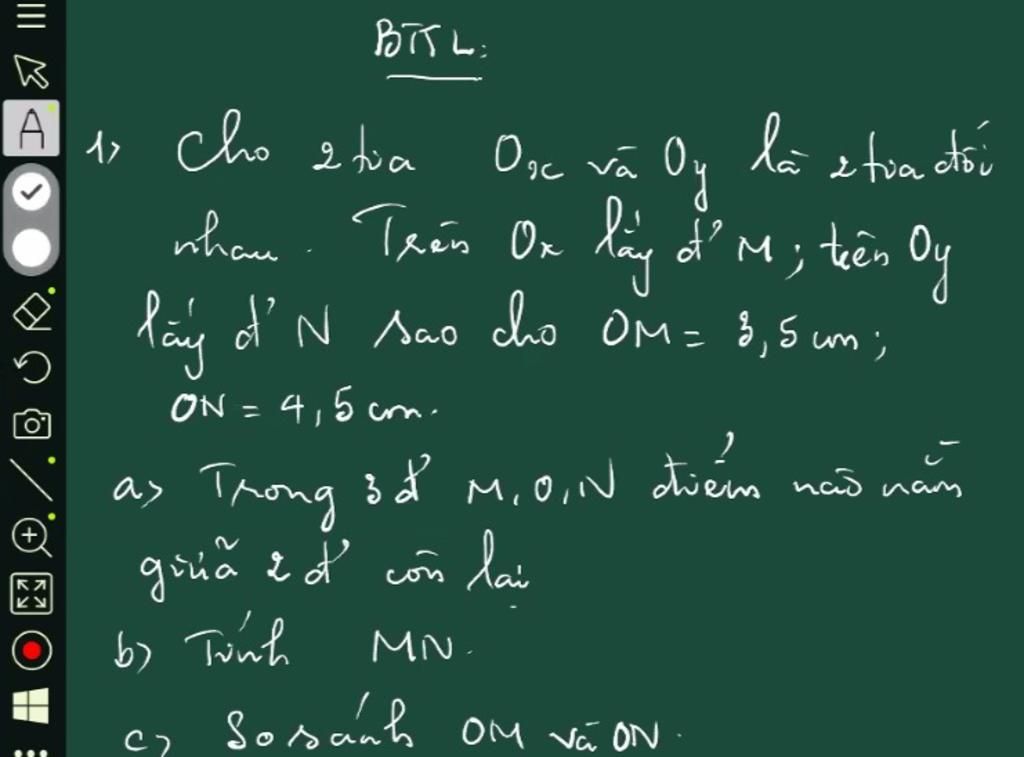 BTTL:
1) Cho 2 tia Ox và Oy là 2 tia đối
nhau. Trên Ox lấy đ' M; trên Oy
lấy đ' N sao cho OM = 3,5 cm;
ON = 4,5 cm.
a) Trong 3 đ' M, O, N điểm nào nằm
giữa 2 đ' còn lại
b) Tính MN.
c) So sánh OM và ON.